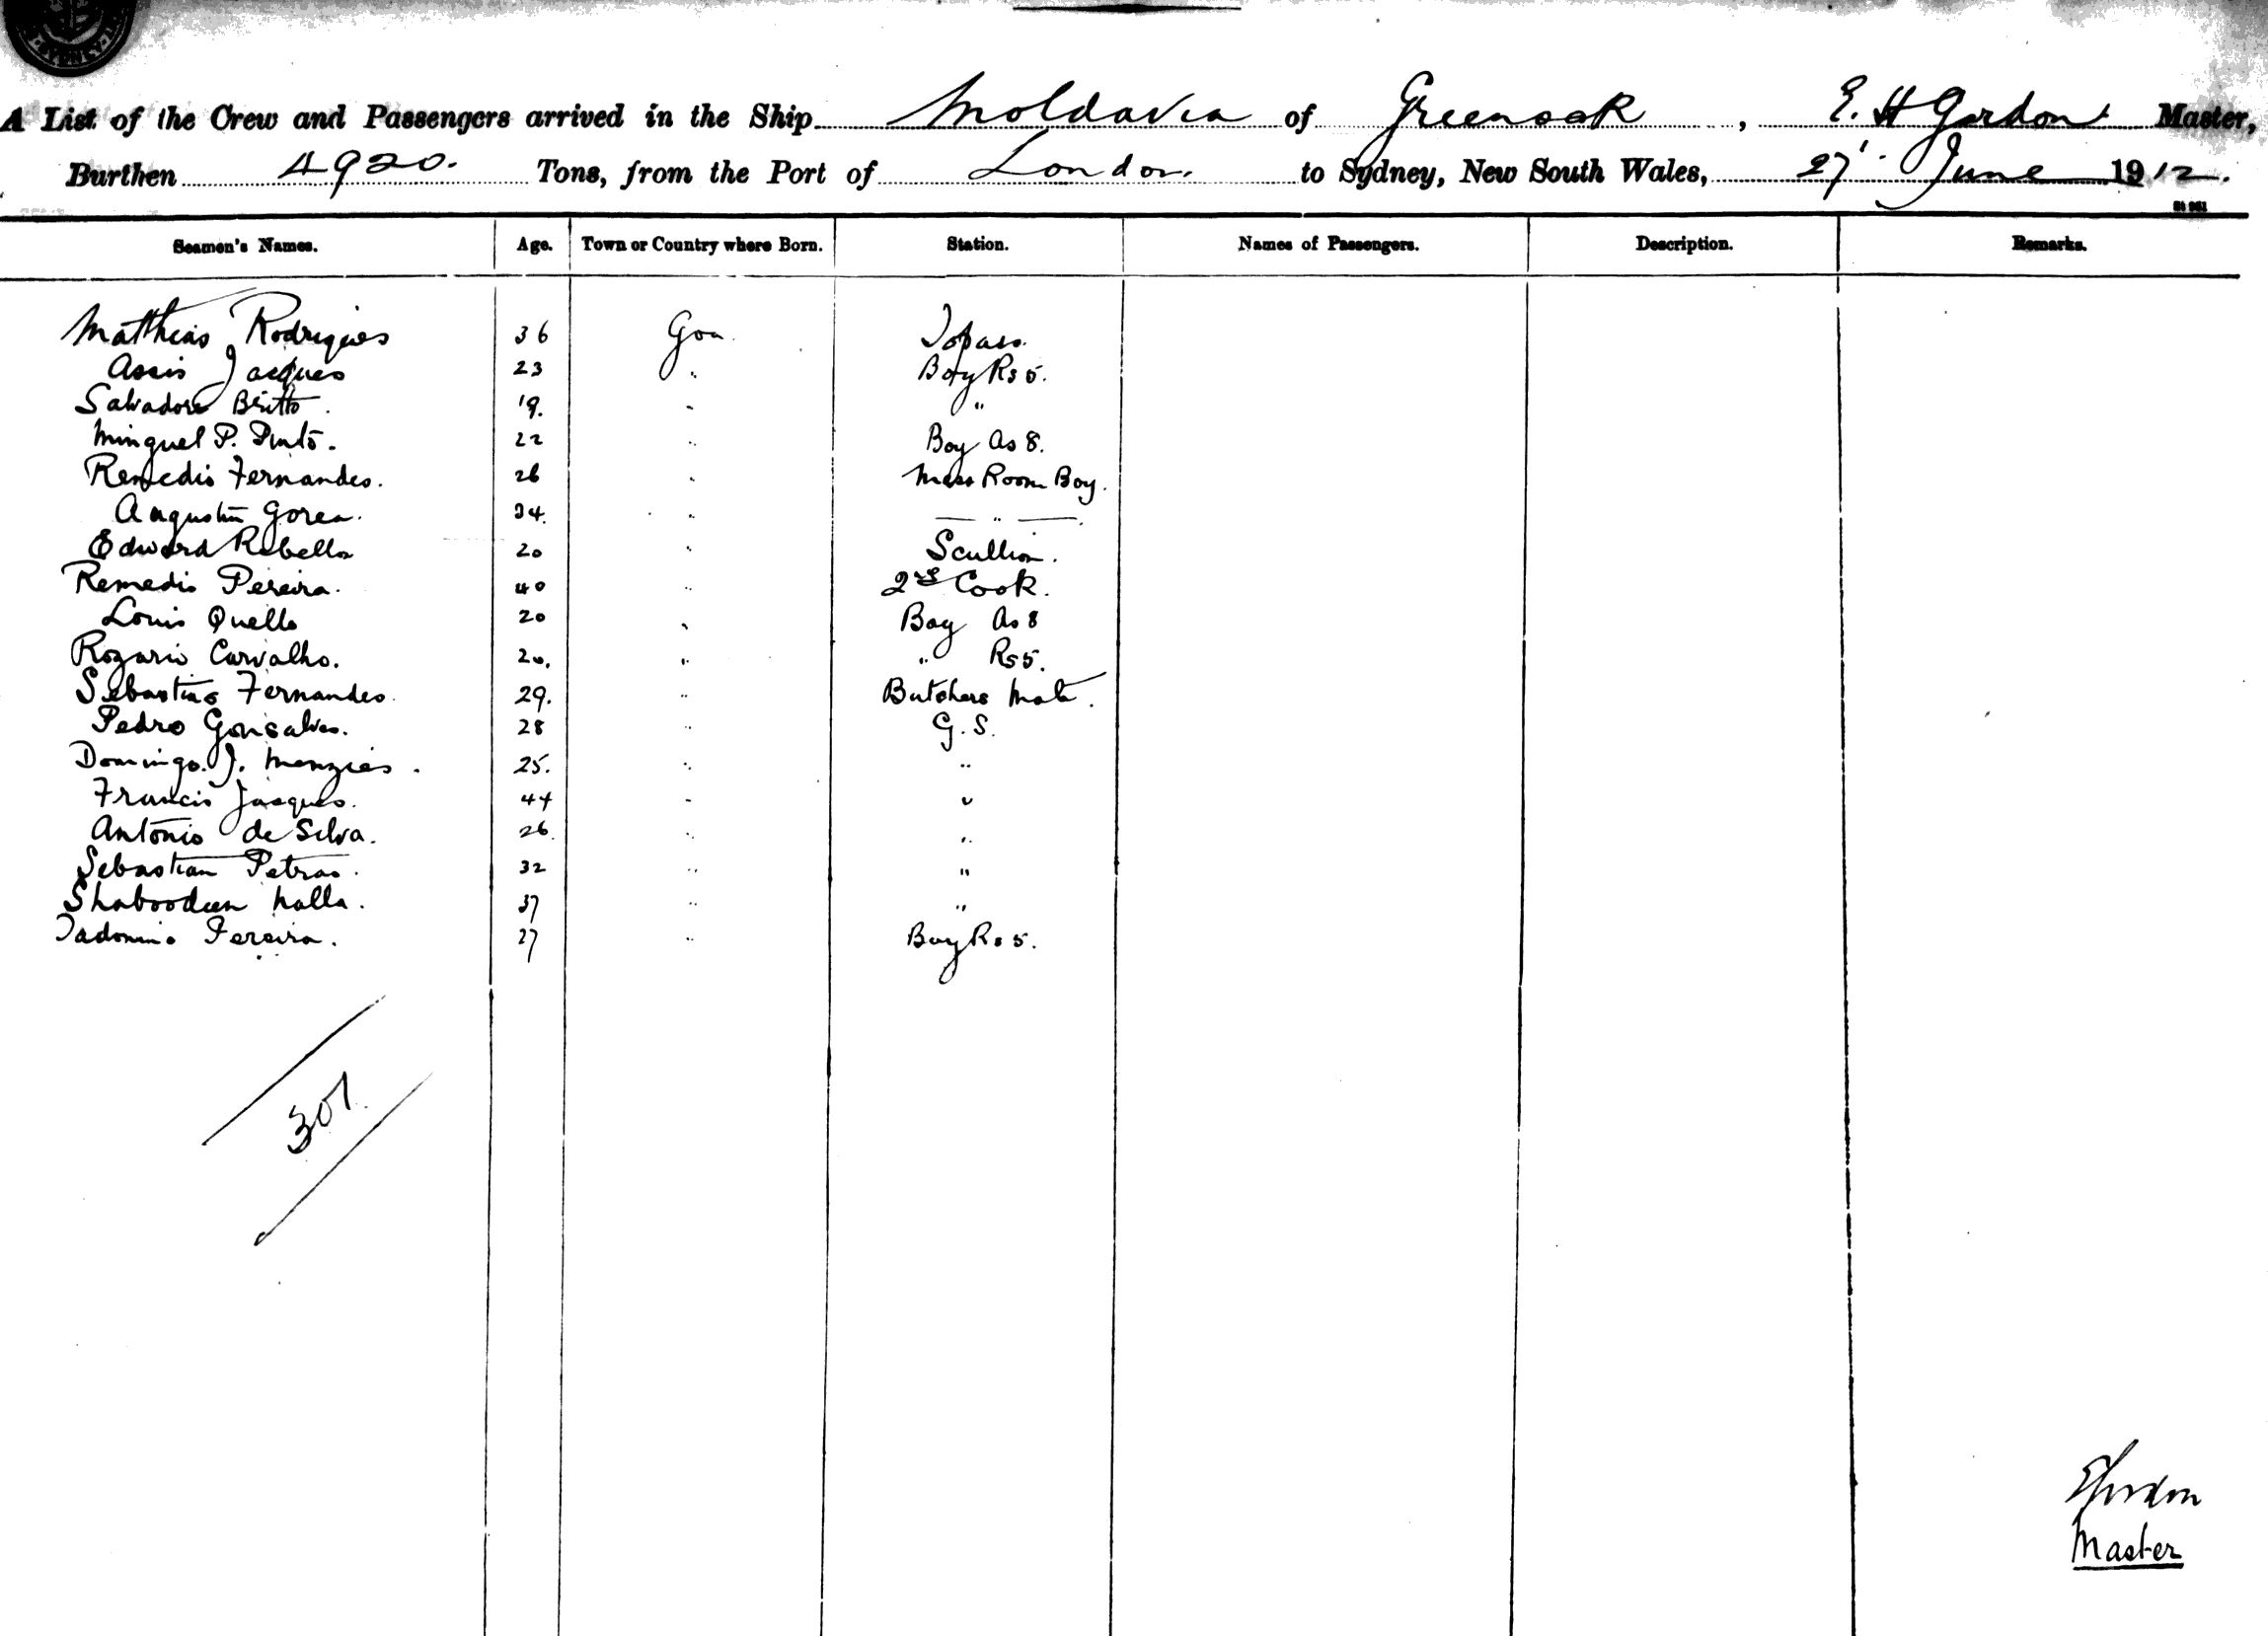 A List of the Crew and Passengers arrived in the Ship Moldavia of Greenock, E. H Gordon Master,
Burthen 4920. Tons, from the Port of London. to Sydney, New South Wales, 27' June 1912.
Seamen's Names. Age. Town or Country where Born. Station. Names of Passengers. Description. Remarks.
Matthias Rodrigues 36 Goa. Topass.
Assis Jacques 23 " Boy Rs 5.
Salvadore Britto. 19. " "
Minguel P. Pinto. 22 " Boy As 8.
Remedio Fernandes. 26 " Mess Room Boy.
Augustin Gorea. 34. " "
Edward Rebello 20 " Scullion.
Remedio Pereira. 40 " 2nd Cook.
Louis Quello 20 " Boy As 8
Rozario Carvalho. 20. " " Rs 5.
Sebastino Fernandes. 29. " Butchers Mate.
Pedro Gonsalves. 28 " G. S.
Domingo. J. Menzies. 25. " "
Francis Jacques. 44 " "
Antonio de Silva. 26. " "
Sebastian Petras. 32 " "
Shaboodeen Nalla. 37 " "
Pereira. 27 " Boy Rs 5.
307.
EGordon
Master